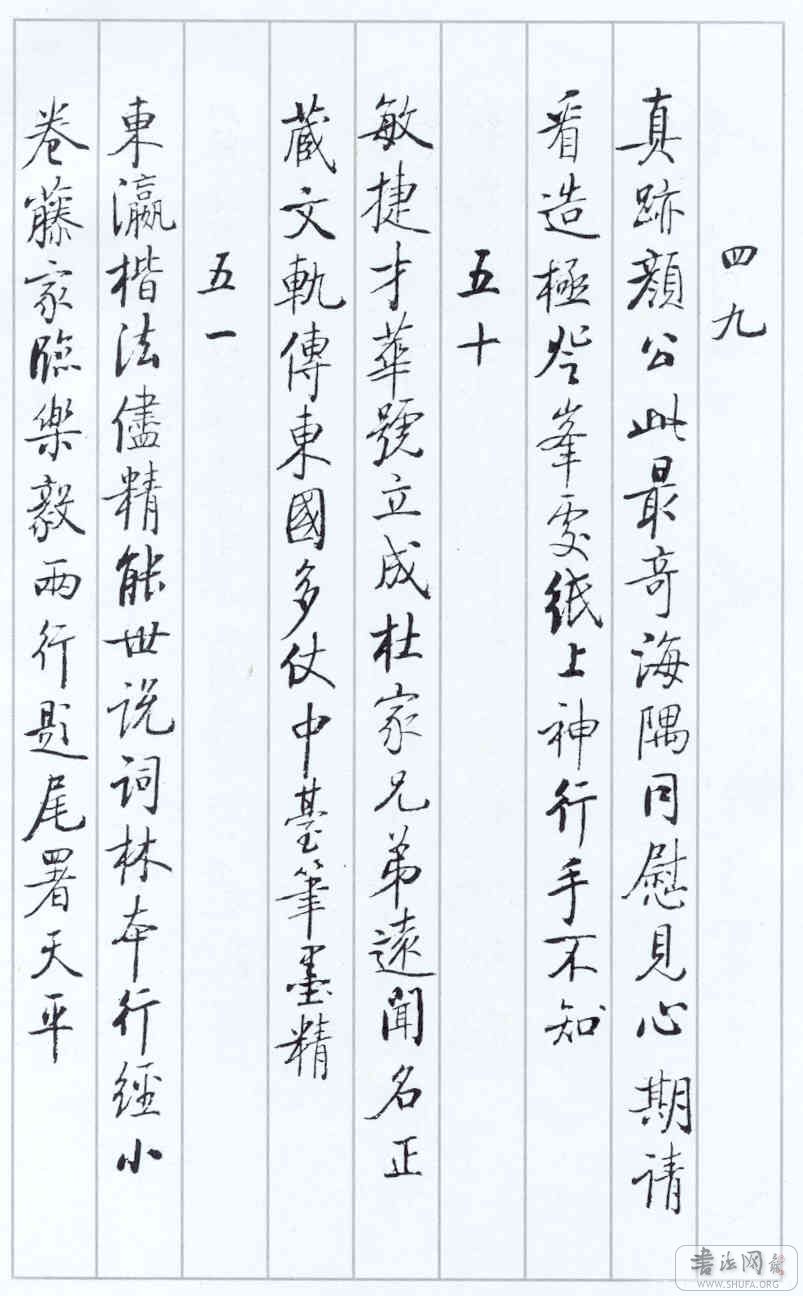 四九
真跡顏公此最奇海隅同慰見心期請
看造極登峯處紙上神行手不知
五十
敏捷才華號立成杜家兄弟遠聞名正
藏文軌傳東國多仗中臺筆墨精
五一
東瀛楷法儘精能世説詞林本行經小
卷藤家臨樂毅兩行題尾署天平
書法网
WWW.SHUFA.ORG